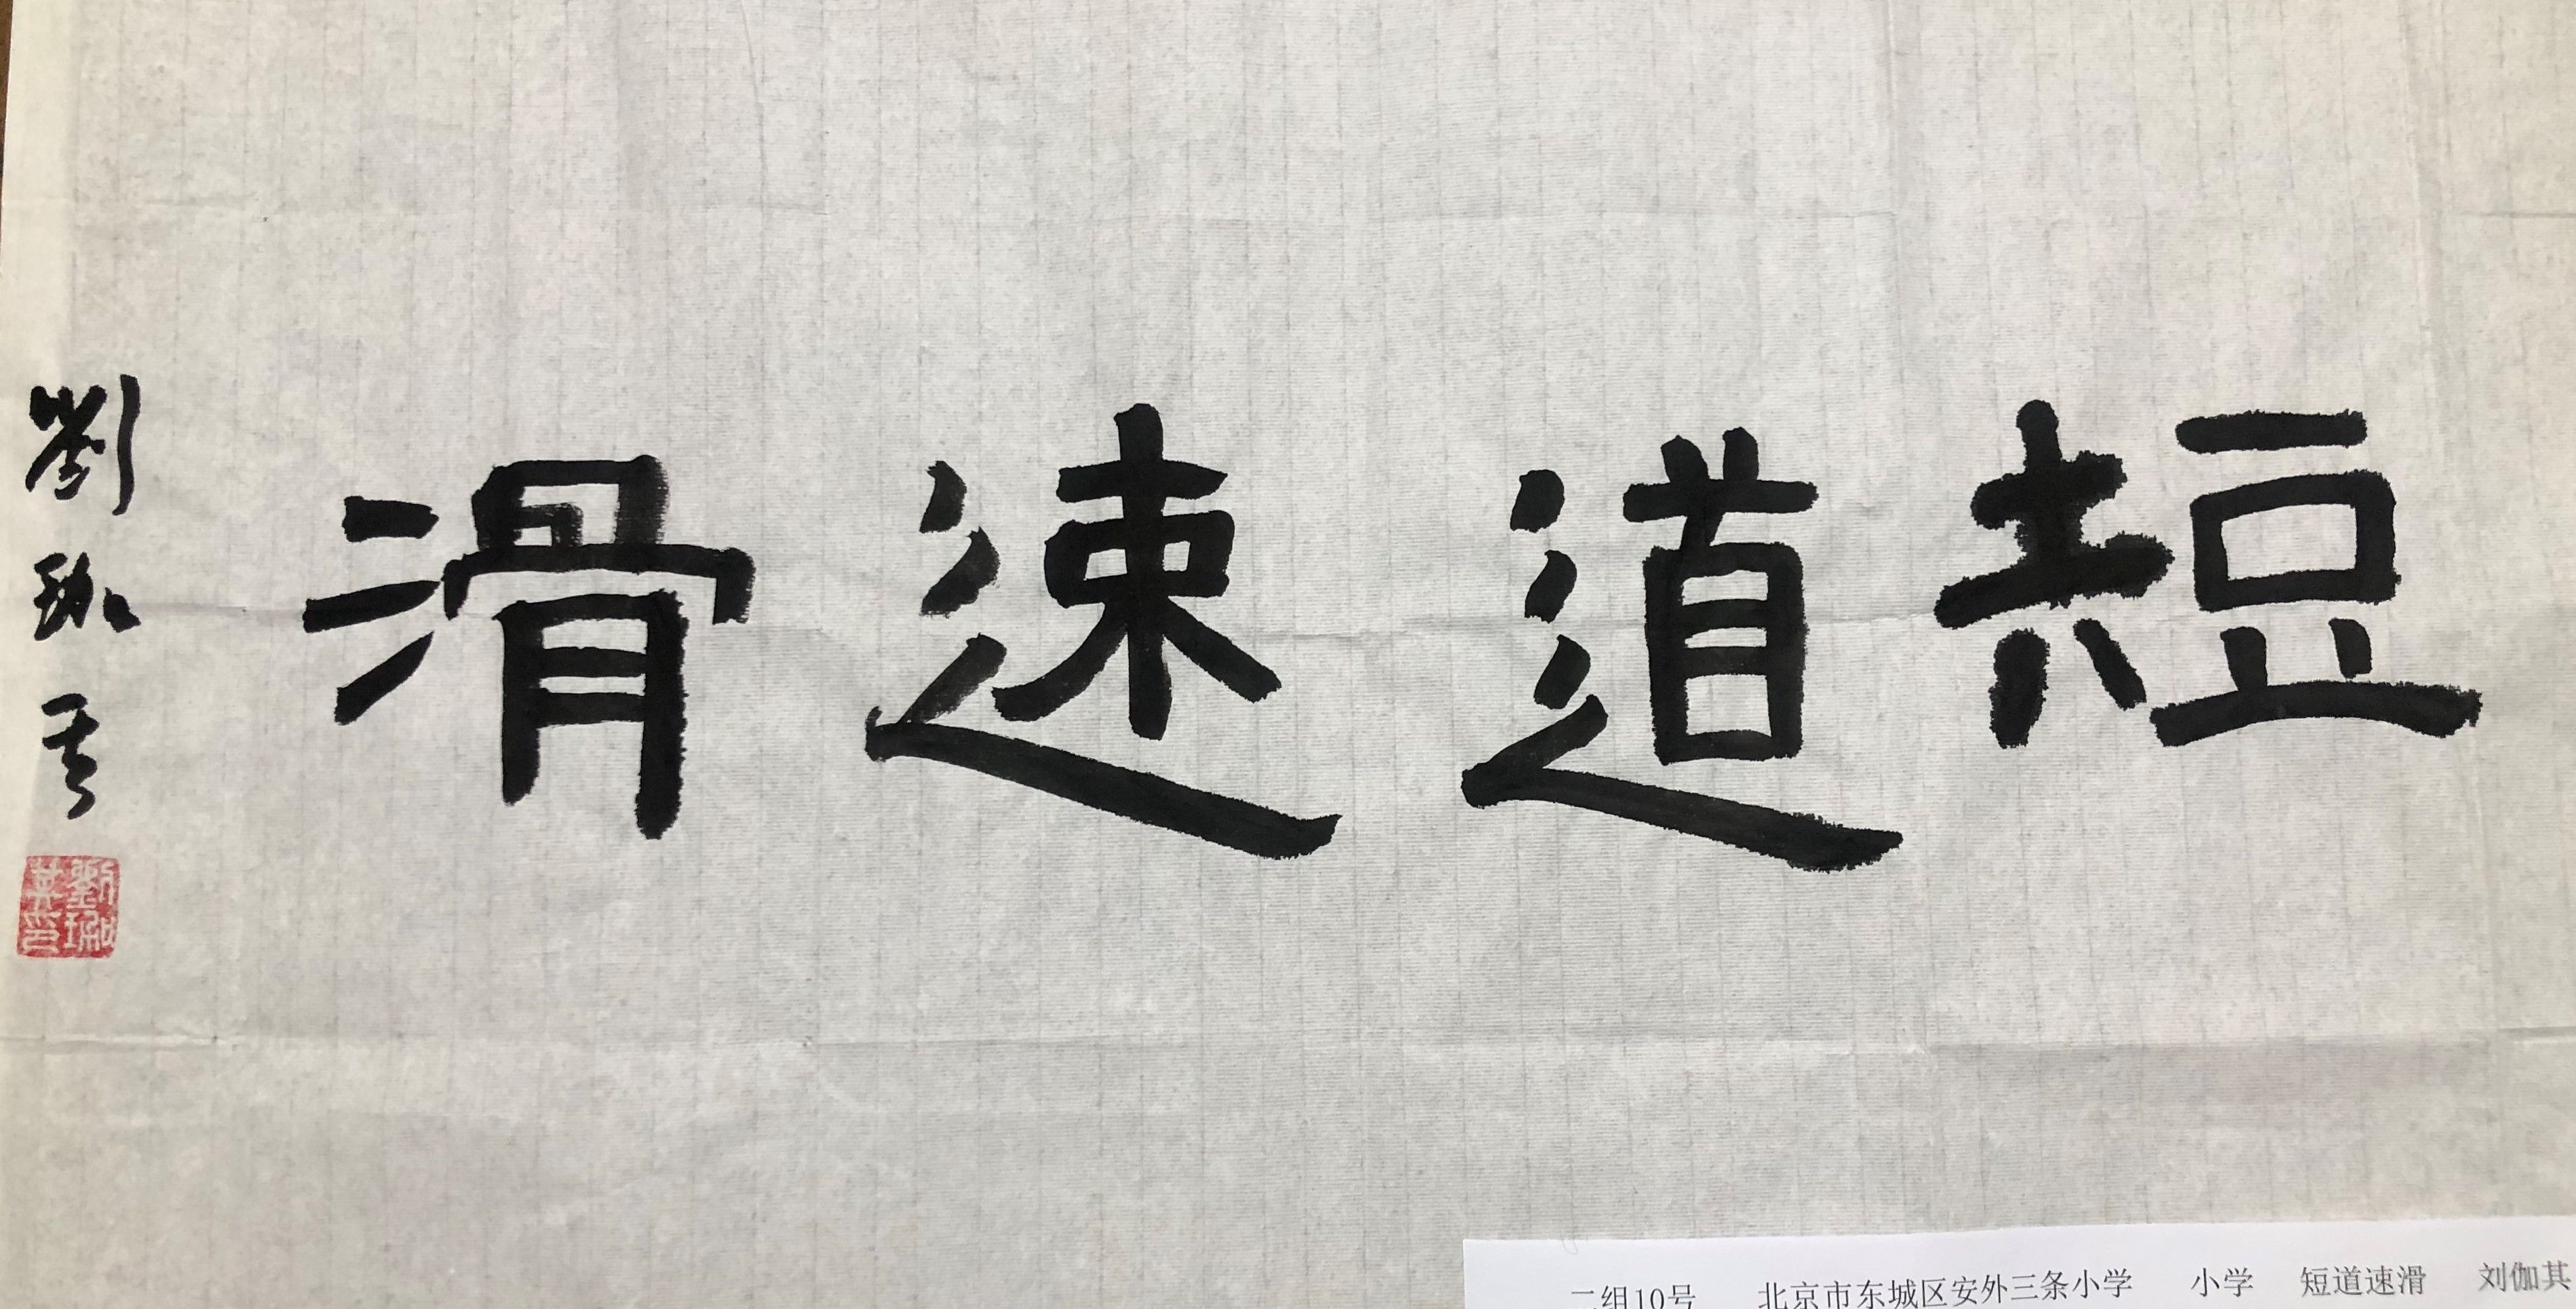 短道速滑
劉珈其
劉珈其印
二组10号 北京市东城区安外三条小学 小学 短道速滑 刘伽其